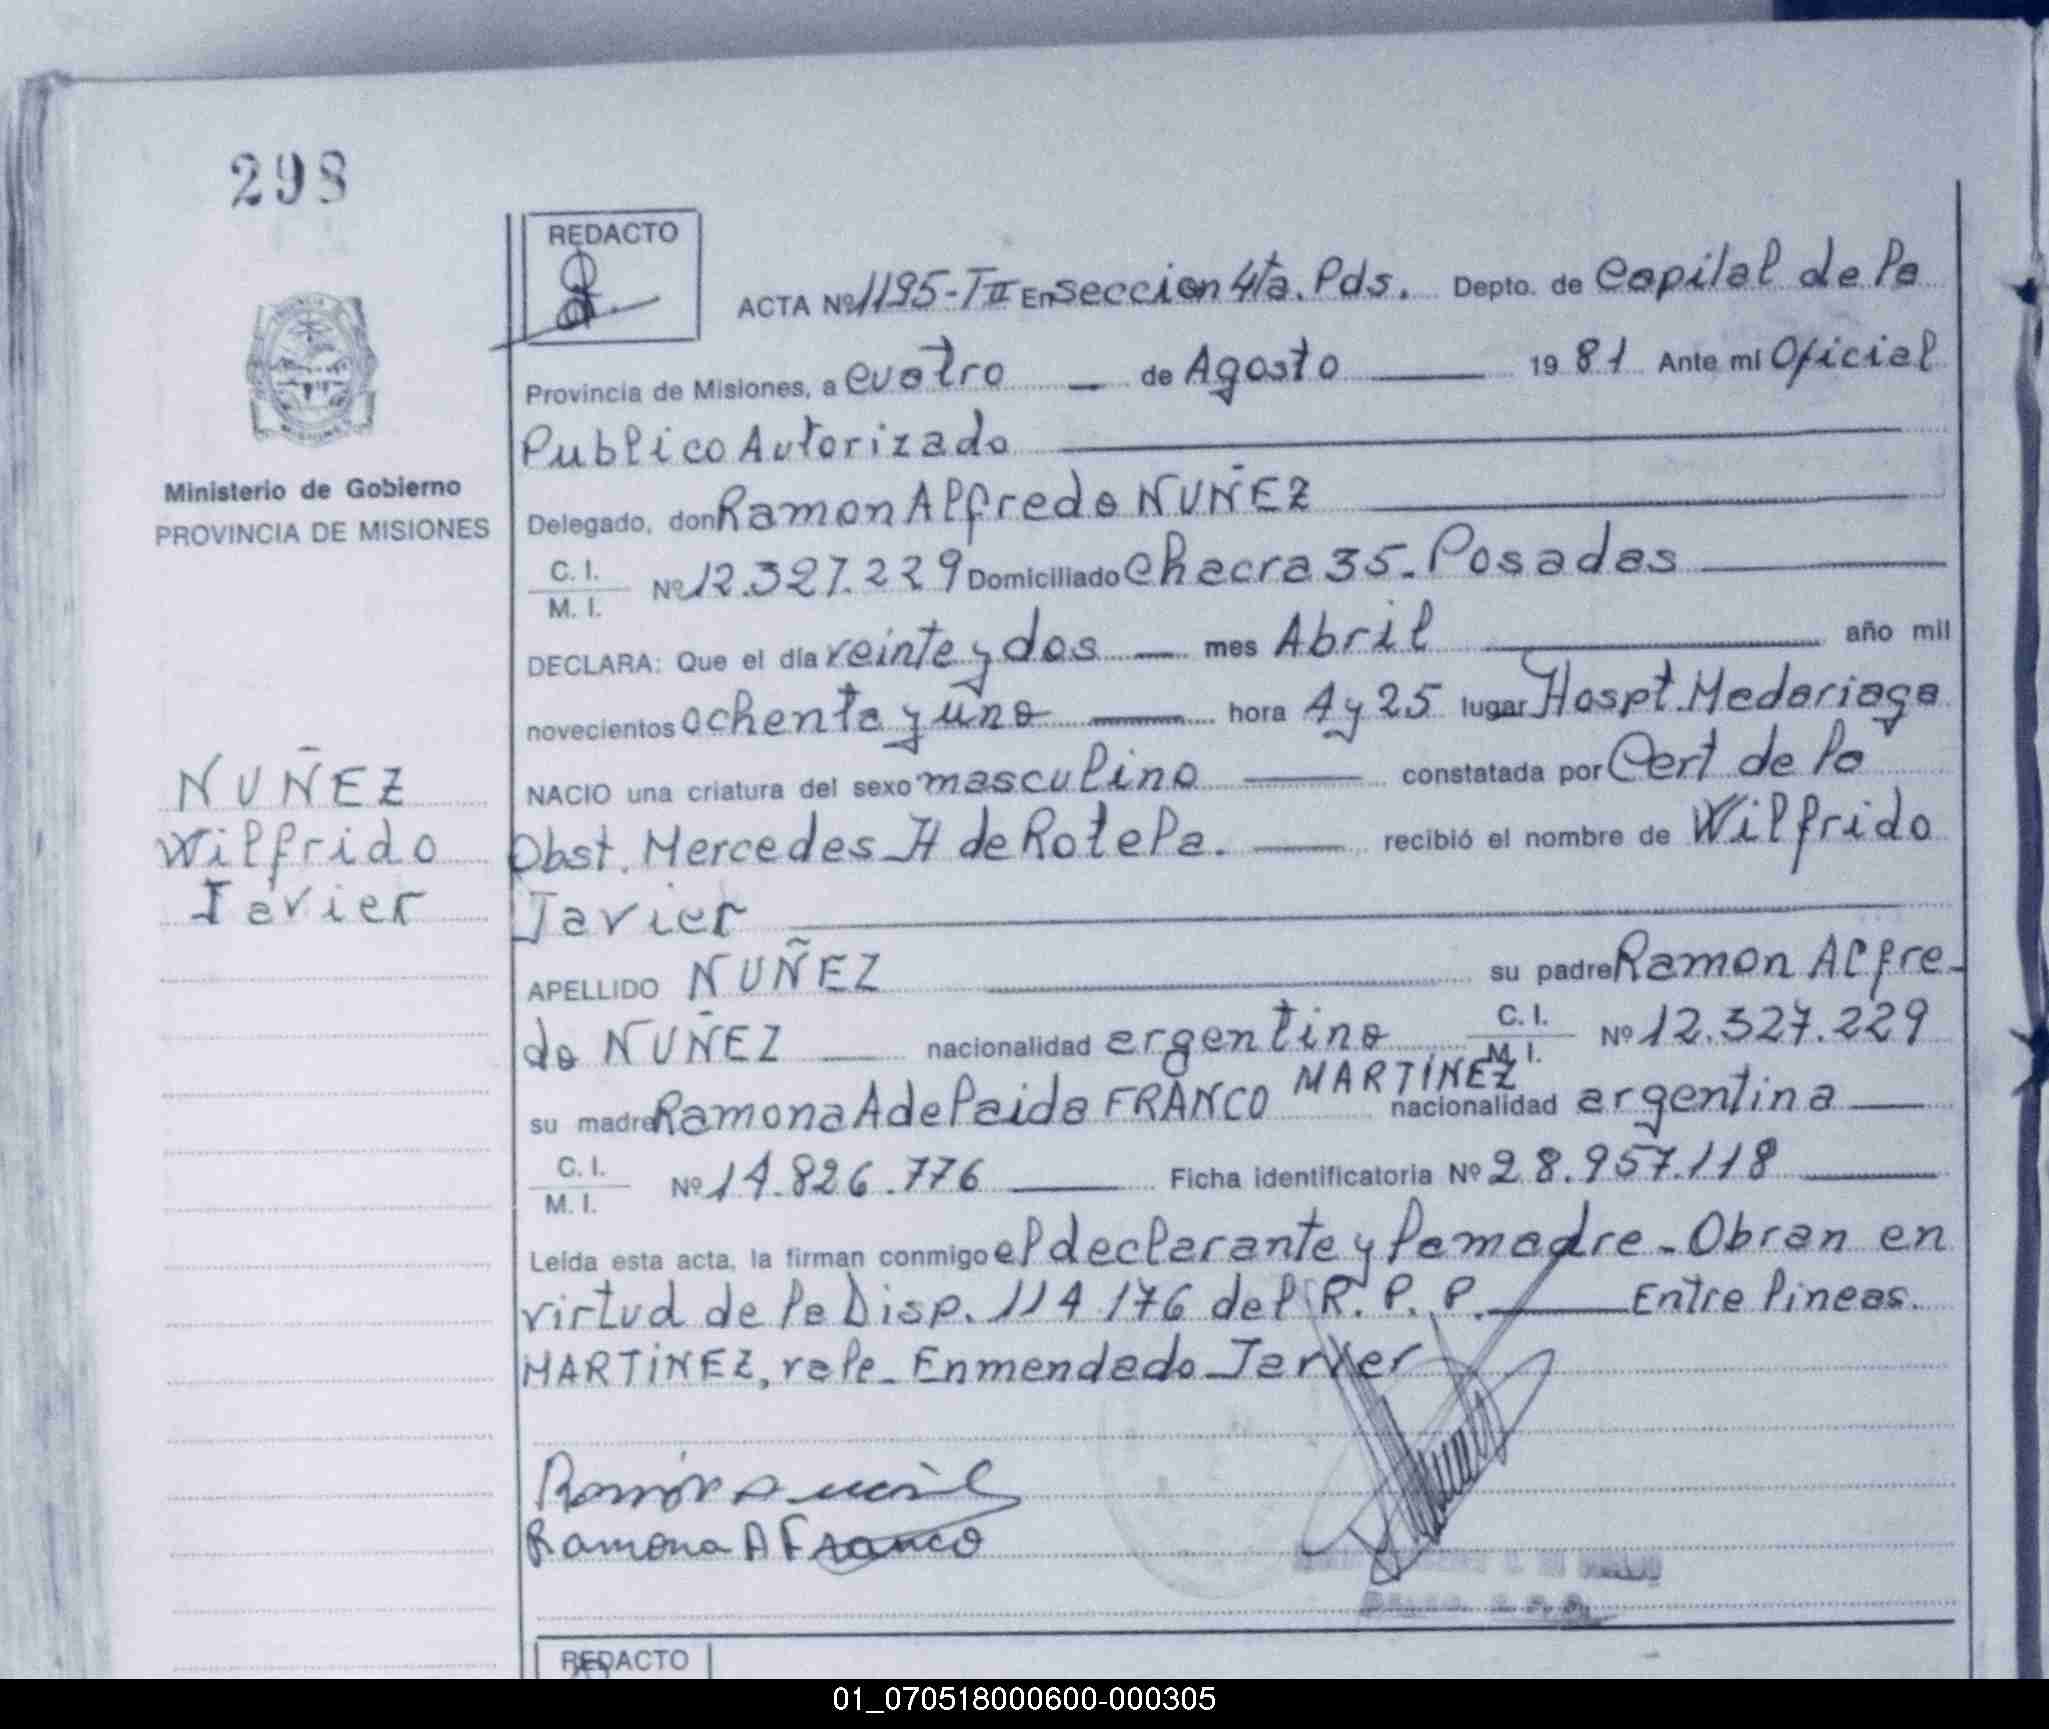 298
REDACTO
ACTA Nº 1195-TII En seccion 4ta. Pds. Depto. de Capital de la
Provincia de Misiones, a cuatro — de Agosto — 1981 Ante mi Oficial
Publico Autorizado
Ministerio de Gobierno
PROVINCIA DE MISIONES
Delegado, don Ramon Alfredo NUÑEZ
C. I. / M. I. Nº 12.327.229 Domiciliado Chacra 35 - Posadas
DECLARA: Que el día veinte y dos — mes Abril — año mil
novecientos ochenta y uno — hora 4 y 25 lugar Hospt. Madariaga
NACIO una criatura del sexo masculino — constatada por Cert de la
Obst. Mercedes H de Rotela. — recibió el nombre de Wilfrido
Javier
NUÑEZ
Wilfrido
Javier
APELLIDO NUÑEZ — su padre Ramon Alfre-
do NUÑEZ — nacionalidad argentino C. I. / M. I. Nº 12.327.229
su madre Ramona Adelaida FRANCO MARTINEZ nacionalidad argentina —
C. I. / M. I. Nº 14.826.776 — Ficha identificatoria Nº 28.957.118 —
Leída esta acta, la firman conmigo el declarante y la madre - Obran en
virtud de la Disp. 114/76 del R. P. P. — Entre lineas.
MARTINEZ, vale - Enmendado Javier
Ramona A Franco
REDACTO
01_070518000600-000305